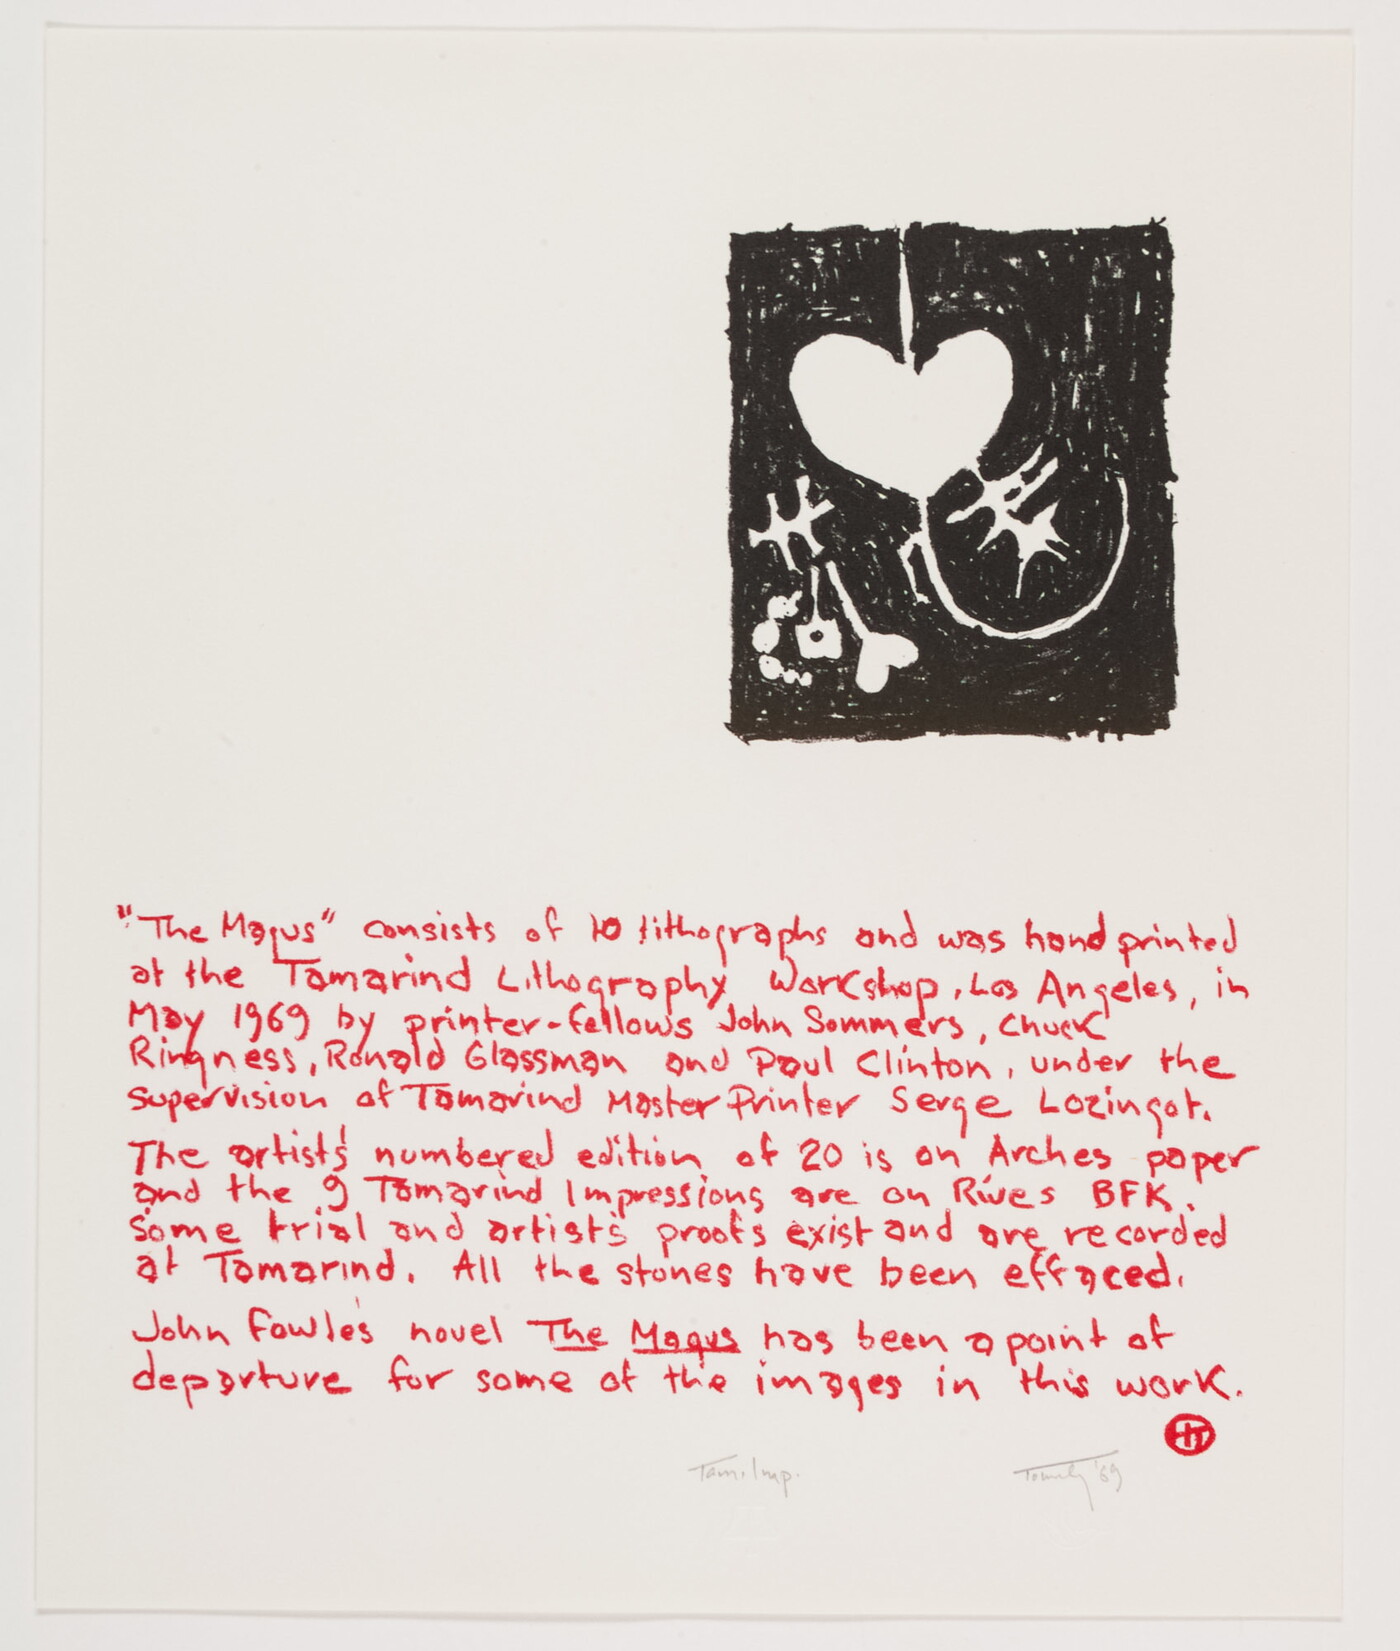 "The Magus" consists of 10 lithographs and was hand printed
at the Tamarind Lithography Workshop, Los Angeles, in
May 1969 by printer-fellows John Sommers, Chuck
Ringness, Ronald Glassman and Paul Clinton, under the
supervision of Tamarind Master Printer Serge Lozingot.
The artist's numbered edition of 20 is on Arches paper
and the 9 Tamarind Impressions are on Rives BFK.
Some trial and artist's proofs exist and are recorded
at Tamarind. All the stones have been effaced.
John Fowles' novel The Magus has been a point of
departure for some of the images in this work.
Tam. Imp. '69